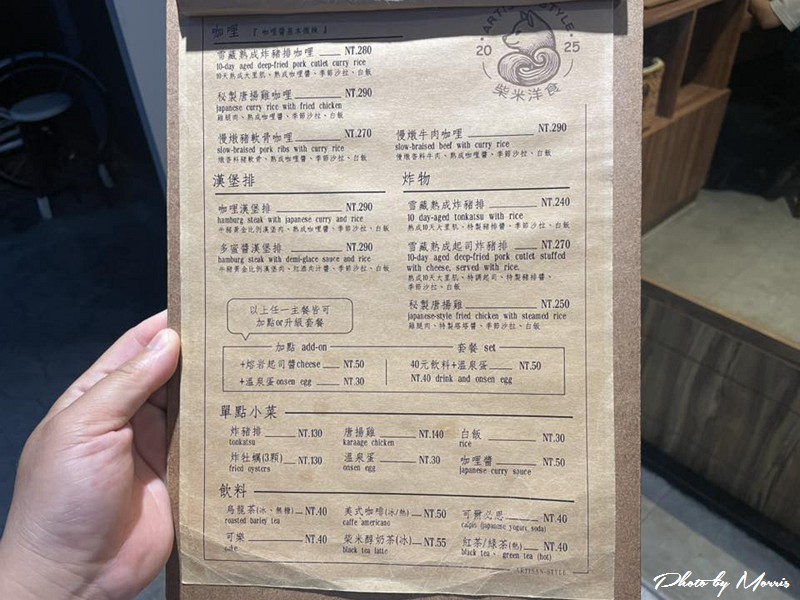 咖哩
雪藏熟成炸豬排咖哩 NT.280
10-day aged deep-fried pork cutlet curry rice
10天熟成大里肌、熟成咖哩醬、季節沙拉、白飯
秘製唐揚雞咖哩 NT.290
japanese curry rice with fried chicken
雞腿肉、熟成咖哩醬、季節沙拉、白飯
慢燉豬軟骨咖哩 NT.270
slow-braised pork ribs with curry rice
燉香料豬軟骨、熟成咖哩醬、季節沙拉、白飯
ARTISAN-STYLE
2025
柴米洋食
慢燉牛肉咖哩 NT.290
slow-braised beef with curry rice
慢燉香料牛肉、熟成咖哩醬、季節沙拉、白飯
漢堡排
咖哩漢堡排 NT.290
hamburg steak with japanese curry and rice
牛豬黃金比例漢堡肉、熟成咖哩醬、季節沙拉、白飯
多蜜醬漢堡排 NT.290
hamburg steak with demi-glace sauce and rice
牛豬黃金比例漢堡肉、紅酒肉汁醬、季節沙拉、白飯
炸物
雪藏熟成炸豬排 NT.240
10 day-aged tonkatsu with rice
熟成10天大里肌、特製豬排醬、季節沙拉、白飯
雪藏熟成起司炸豬排 NT.270
10-day aged deep-fried pork cutlet stuffed
with cheese, served with rice.
熟成10天大里肌、特調起司、特製豬排醬、
季節沙拉、白飯
秘製唐揚雞 NT.250
japanese-style fried chicken with steamed rice
雞腿肉、特製塔塔醬、季節沙拉、白飯
以上任一主餐皆可
加點or升級套餐
加點 add-on
+熔岩起司醬cheese NT.50
+溫泉蛋onsen egg NT.30
套餐 set
40元飲料+溫泉蛋 NT.50
NT.40 drink and onsen egg
單點小菜
炸豬排 NT.130 唐揚雞 NT.140 白飯 NT.30
tonkatsu karaage chicken rice
炸牡蠣(3顆) NT.130 溫泉蛋 NT.30 咖哩醬 NT.50
fried oysters onsen egg japanese curry sauce
飲料
烏龍茶(冰、無糖) NT.40 美式咖啡(冰/熱) NT.50 可爾必思 NT.40
roasted barley tea caffe americano calpis (japanese yogurt soda)
可樂 NT.40 柴米醇奶茶(冰) NT.55 紅茶/綠茶(熱) NT.40
black tea latte black tea、green tea (hot)
ARTISAN-STYLE
Photo by Morris